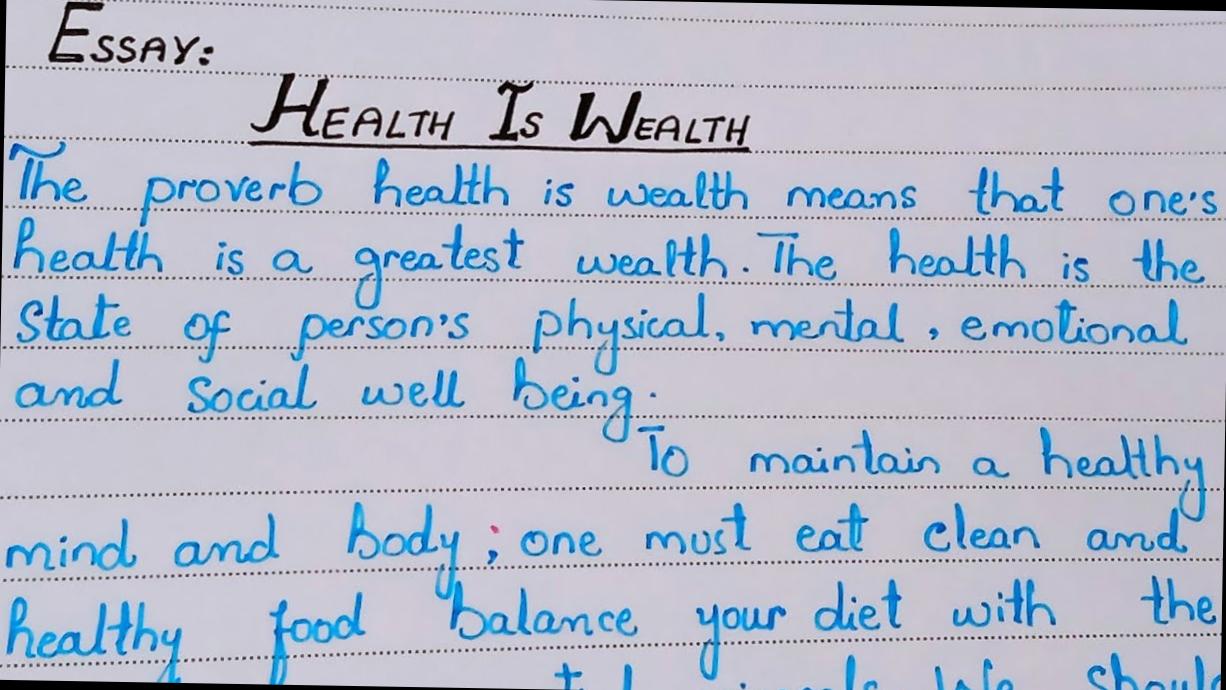 ESSAY:
HEALTH IS WEALTH
The proverb health is wealth means that one's
health is a greatest wealth. The health is the
State of person's physical, mental, emotional
and Social well being.
To maintain a healthy
mind and body; one must eat clean and
healthy food balance your diet with the
We should